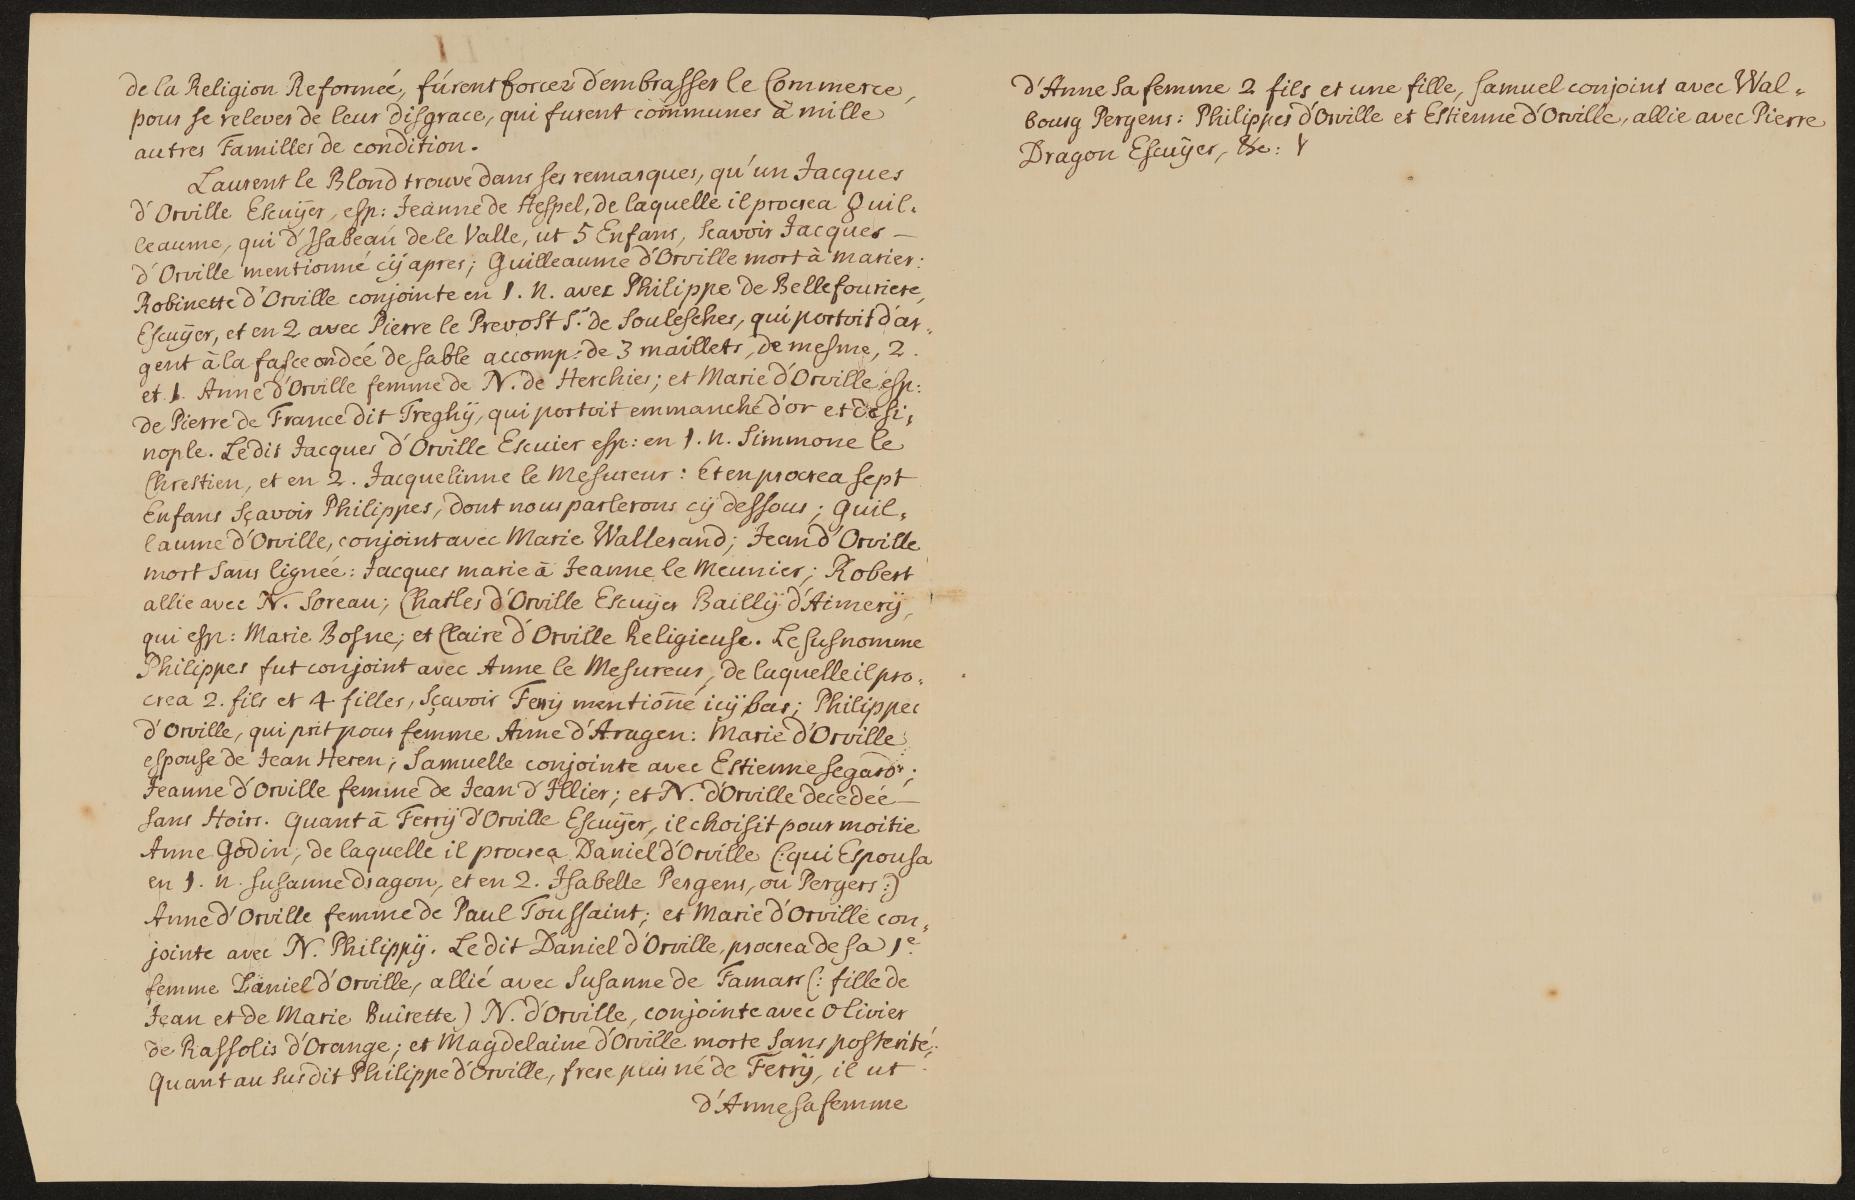 de la Religion Reformeé, fúrent forcez d'embrasser le Commerce,
pour se relever de leur disgrace, qui furent communes à mille
autres Familles de condition.
Laurent le Blond trouve dans ses remarques, qu'un Jacques
d'Orville Escuÿer, esp: Jeanne de Hespel, de laquelle il procrea Guil-
leaume, qui d'Isabeau de le Valle, ut 5 Enfans, scavoir Jacques —
d'Orville mentionné cÿ apres; Guilleaume d'Orville mort à marier:
Robinette d'Orville conjointe en 1. n. avec Philippe de Bellefouriere,
Escuÿer, et en 2 avec Pierre le Prevost Sr. de Soulesches, qui portoit d'ar-
gent à la fasce ondeé de sable accomp: de 3 maillets, de mesme, 2.
et 1. Anne d'Orville femme de N. de Herchies; et Marie d'Orville esp:
de Pierre de France dit Treghÿ, qui portoit emmanché d'or et de si-
nople. Ledit Jacques d'Orville Escuier esp: en 1. n. Simmone le
Chrestien, et en 2. Jacquelinne le Mesureur: Et en procrea sept
Enfans Sçavoir Philippes, dont nous parlerons cÿ dessous; Guil-
laume d'Orville, conjoint avec Marie Wallerand; Jean d'Orville
mort sans ligneé: Jacques marie à Jeanne le Meunier; Robert
allie avec N. Soreau; Charles d'Orville Escuÿer Baillÿ d'Aimerÿ,
qui esp: Marie Bosne; et Claire d'Orville Religieuse. Le susnomme
Philippes fut conjoint avec Anne le Mesureur, de laquelle il pro-
crea 2. fils et 4 filles, Sçavoir Ferrÿ mentionné icÿ bas; Philippes
d'Orville, qui prit pour femme Anne d'Aragen: Marie d'Orville
espouse de Jean Heren; Samuelle conjointe avec Estienne Segard;
Jeanne d'Orville femme de Jean d'Illier; et N. d'Orville decedeé —
sans Hoirs. Quant à Ferrÿ d'Orville Escuÿer, il choisit pour moitie
Anne Godin, de laquelle il procrea Daniel d'Orville (: qui Espousa
en 1. n. Susanne dragon, et en 2. Isabelle Pergens, ou Pergers:)
Anne d'Orville femme de Paul Toussaint; et Marie d'Orville con-
jointe avec N. Philippÿ. Le dit Daniel d'Orville, procrea de sa 1e.
femme Daniel d'Orville, allié avec Susanne de Famars (: fille de
Jean et de Marie Buirette) N. d'Orville, conjointe avec Olivier
de Rassolis d'Orange; et Magdelaine d'Orville morte sans posterité;
Quant au susdit Philippe d'Orville, frere puis né de Ferrÿ, il ut
d'Anne sa femme
d'Anne sa femme 2 fils et une fille, Samuel conjoint avec Wal-
bourg Pergens: Philippes d'Orville et Estienne d'Orville, allie avec Pierre
Dragon Escuÿer, &c: